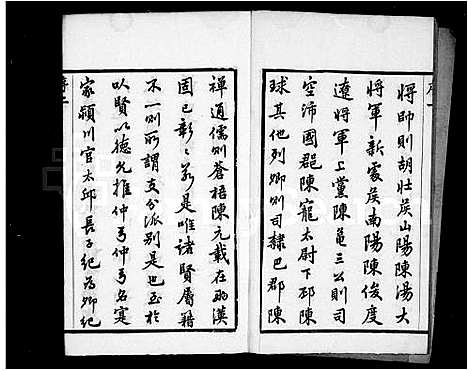 將帥則胡壯矦山陽陳湯大
將軍新處矦南陽陳俊度
遼將軍上黨陳龜三公則司
空沛國郡陳寵太尉下邳陳
球其他列卿則司隸巴郡陳
禪通儒則蒼梧陳元載在兩漢
固已彰彰若是唯諸賢屬籍
不一則所謂支分派別是也至於
以賢以德尤推仲弓仲弓名寔
家潁川官太邱長子紀為卿紀
序二